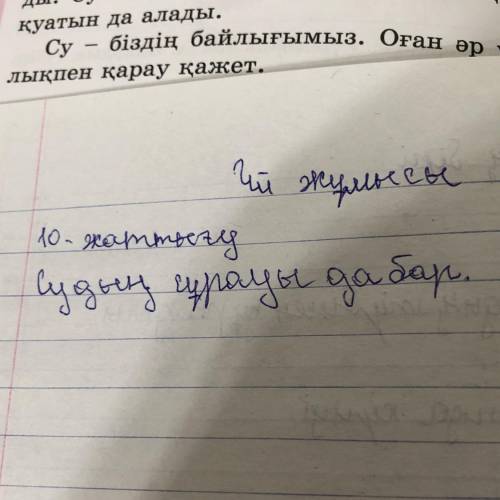 қуатын да алады.
Су – біздің байлығымыз. Оған әр
лықпен қарау қажет.
Үй жұмысы
10-жаттығу
Судың сұрауы да бар.